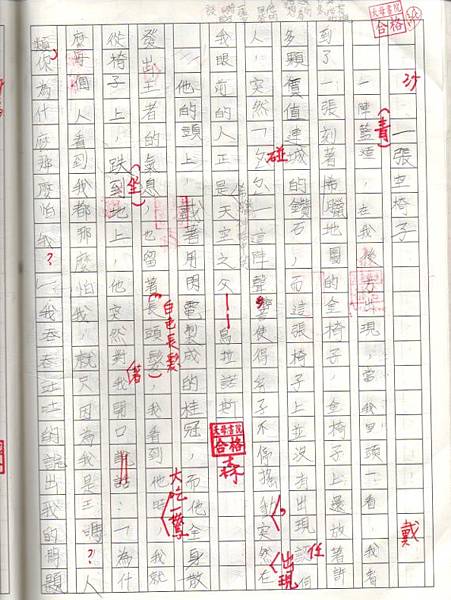 合格
戴
一張空椅子
一陣藍煙,在我後方出現,當我回頭一看,我看
到了一張刻著希臘地圖的金椅子,金椅子上還放著許
多顆價值連城的鑽石,而這張椅子上並沒有出現何
人,突然「ㄆㄥ」這陣聲響使得椅子不停搖動突然在
我眼前的人正是天空之父——烏拉諾斯
他的頭上,戴著用閃電製成的桂冠,而他全身散
發出王者的氣息,也留著長頭髮,我看到他時,我就
從椅子上,跌到地上,他突然對我開口說話:「為什
麼每個人看到我都那麼怕我,就只因為我是王嗎?人
類你為什麼那麼怕我?」我吞吞吐吐的說出我的問題
青
碰
任
出現
合格
森
大吃一驚
白色長髮
坐